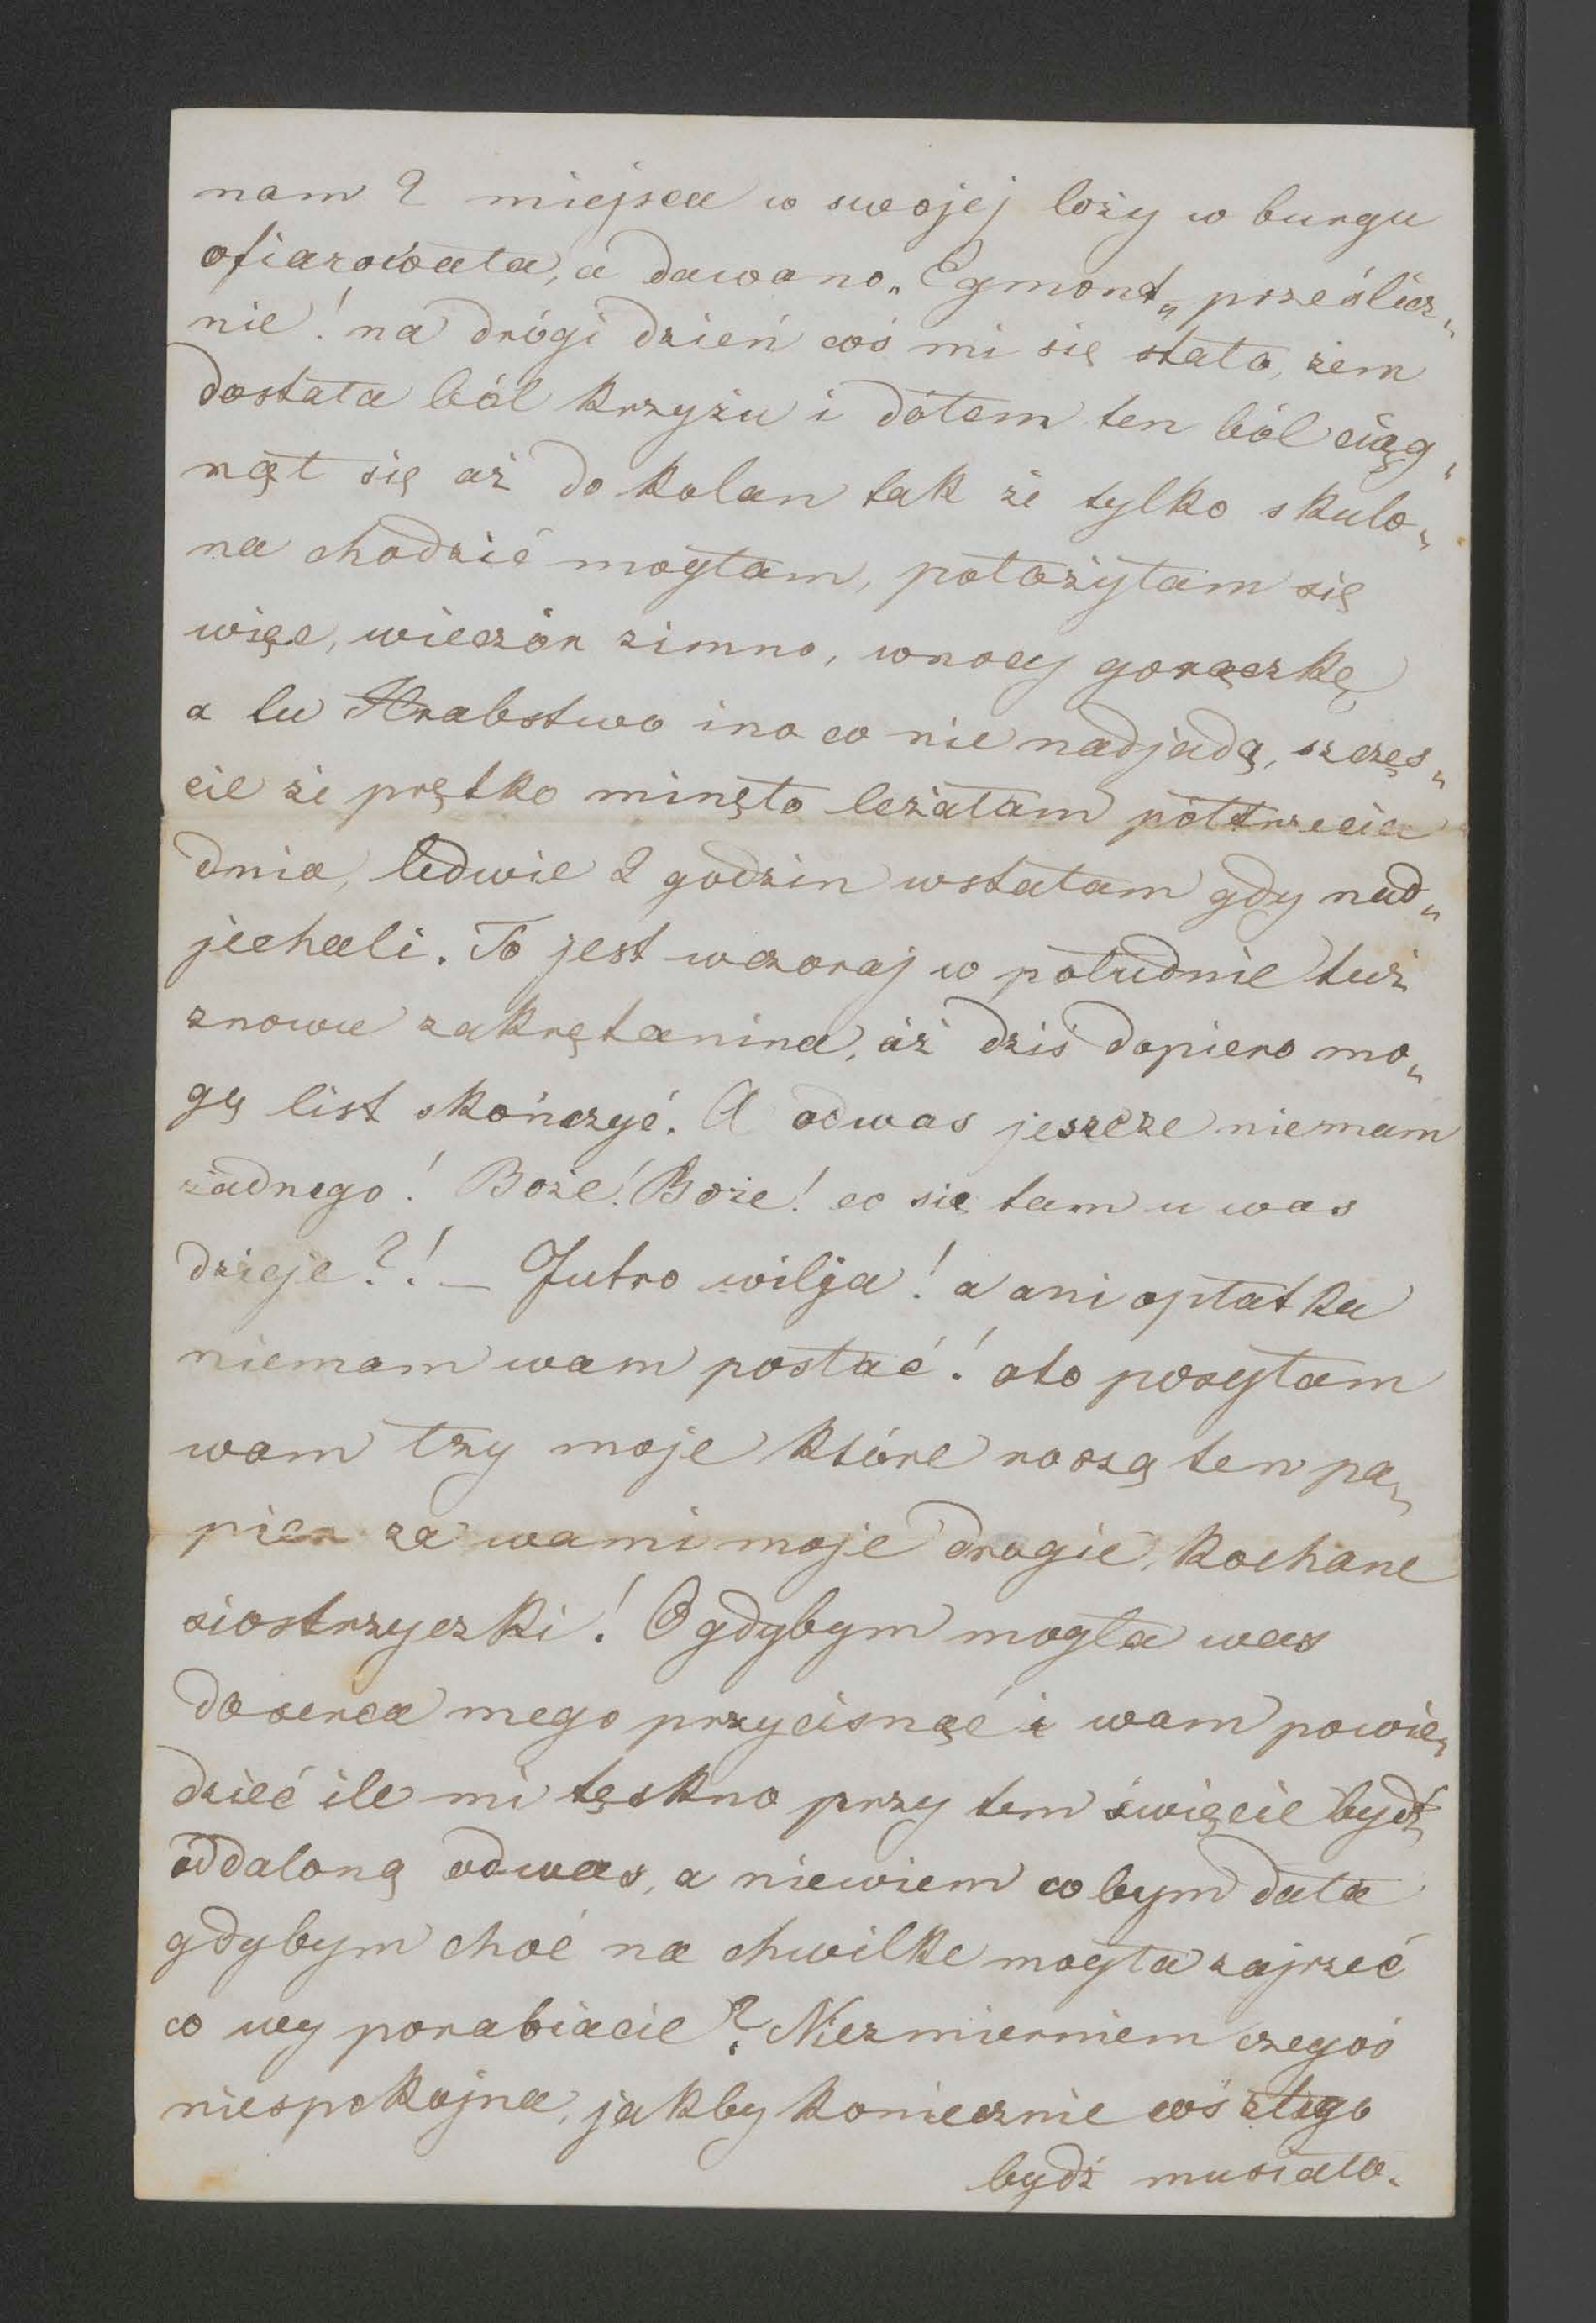 nam 2 miejsca w swojej loży w burgu
ofiarowała, a dawano „Egmont„ prześlicz„
nie! na drógi dzień coś mi się stało, żem
dostała ból krzyżu i dołem ten ból ciąg„
nął się aż do kolan tak że tylko skulo„
na chodzić mogłam, położyłam się
więc, wieczór zimno, wnocy gorączkę
a tu Hrabstwo ino co nie nadjadą, szczęs„
cie że prętko minęło leżałam półtrzecia
dnia, ledwie 2 godzin wstałam gdy nad„
jechali. To jest wczoraj w południe tuż
znowu zakrętanina, aż dziś dopiero mo„
gę list skończyć. A odwas jeszcze niemam
żadnego! Boże! Boże! co się tam u was
dzieje?! – Jutro wilja! a ani opłatka
niemam wam posłać! oto posyłam
wam łzy moje które roszą ten pa„
pier za wami moje drogie, kochane
siostrzyczki! O gdybym mogła was
doserca mego przycisnąć i wam powie„
dzieć ile mi tęskno przy tem święcie bydź
oddaloną odwas, a niewiem cobym dała
gdybym choć na chwilke mogła zajrzeć
co wy porabiacie? Niezmierniem czegoś
niespokojna, jakby koniecznie coś złego
bydź musiało.